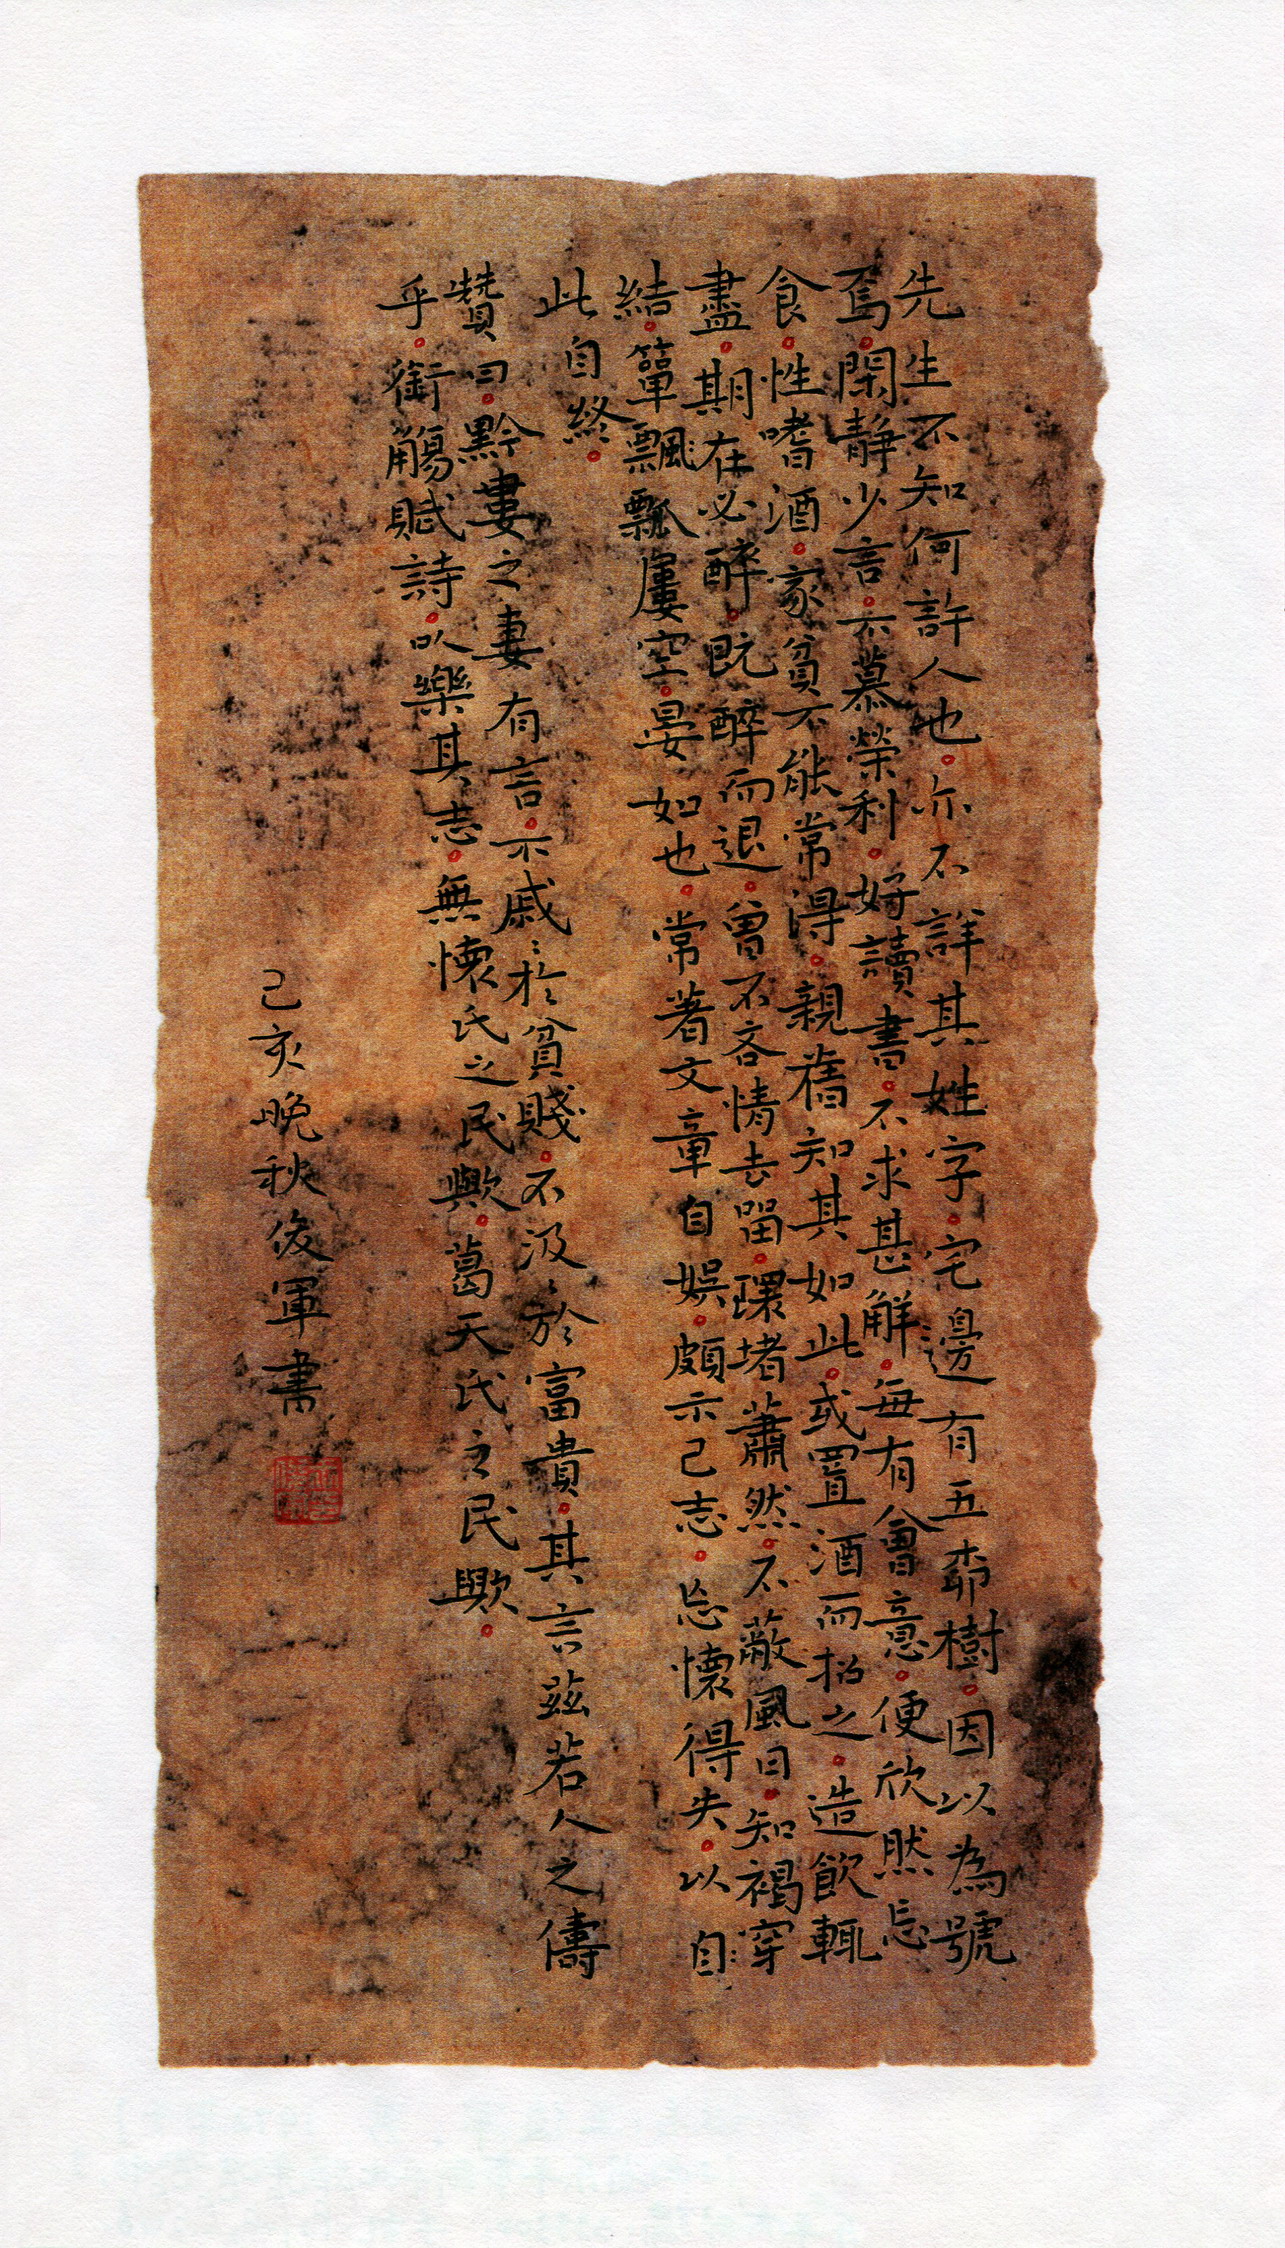 先生不知何許人也。亦不詳其姓字。宅邊有五桺樹。因以為號
焉。閑靜少言。不慕榮利。好讀書。不求甚解。每有會意。便欣然忘
食。性嗜酒。家貧不能常得。親舊知其如此。或置酒而招之。造飲輒
盡。期在必醉。既醉而退。曾不吝情去留。環堵蕭然。不蔽風日。知褐穿
結。簞飄瓢屢空。晏如也。常著文章自娛。頗示己志。忘懷得失。以自
此自終。
贊曰。黔婁之妻有言。不戚〻於貧賤。不汲〻於富貴。其言茲若人之儔
乎。銜觴賦詩。以樂其志。無懷氏之民歟。葛天氏之民歟。
己亥晚秋俊軍書